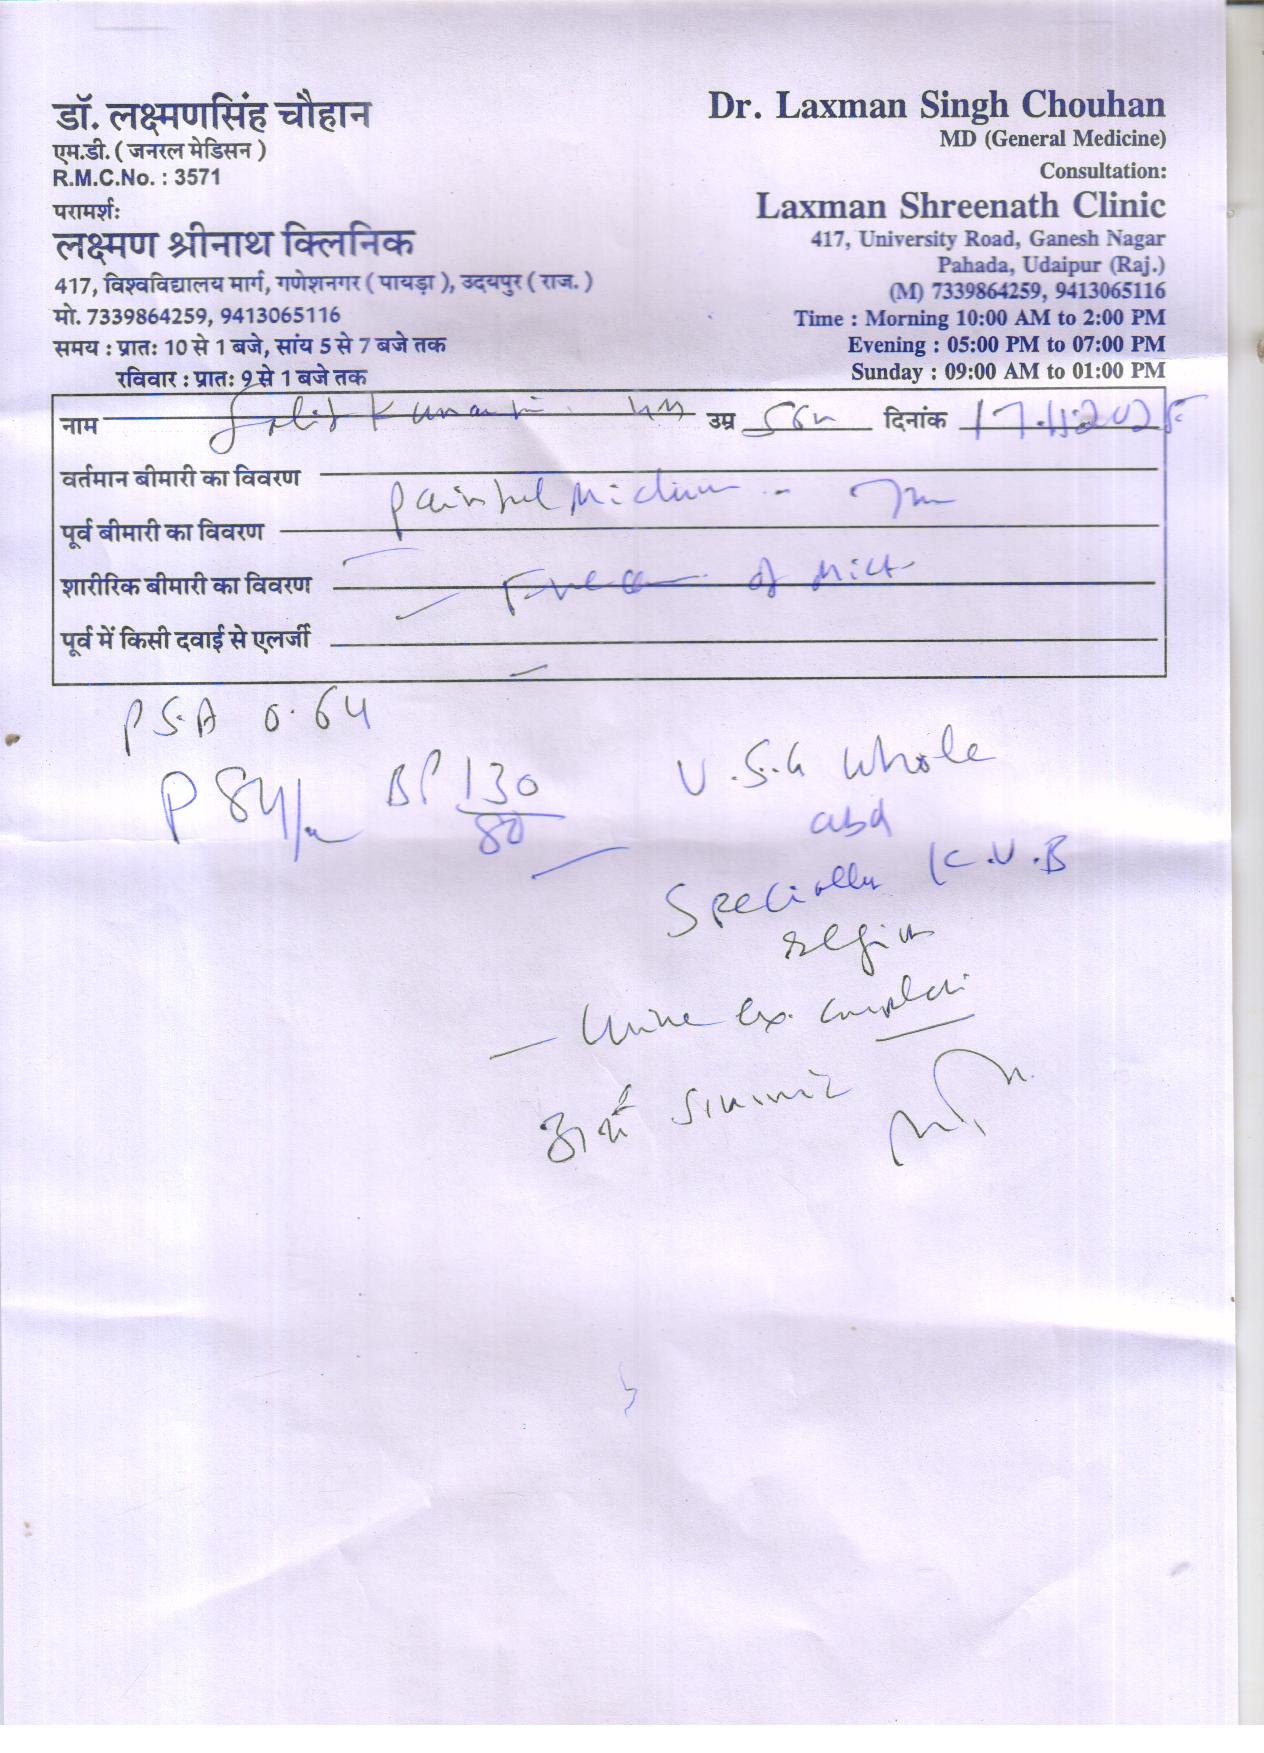 डॉ. लक्ष्मणसिंह चौहान
एम.डी. ( जनरल मेडिसन )
R.M.C.No. : 3571
परामर्श:
लक्ष्मण श्रीनाथ क्लिनिक
417, विश्वविद्यालय मार्ग, गणेशनगर ( पायड़ा ), उदयपुर ( राज. )
मो. 7339864259, 9413065116
समय : प्रात: 10 से 1 बजे, सांय 5 से 7 बजे तक
रविवार : प्रात: 9 से 1 बजे तक
Dr. Laxman Singh Chouhan
MD (General Medicine)
Consultation:
Laxman Shreenath Clinic
417, University Road, Ganesh Nagar
Pahada, Udaipur (Raj.)
(M) 7339864259, 9413065116
Time : Morning 10:00 AM to 2:00 PM
Evening : 05:00 PM to 07:00 PM
Sunday : 09:00 AM to 01:00 PM
नाम उम्र दिनांक
वर्तमान बीमारी का विवरण
Painful
पूर्व बीमारी का विवरण
शारीरिक बीमारी का विवरण of Mict
पूर्व में किसी दवाई से एलर्जी
PSA 0.64
P 84/m BP 130/80
U.S.G Whole
abd
Specially K.U.B
region
Urine Ex. Complete